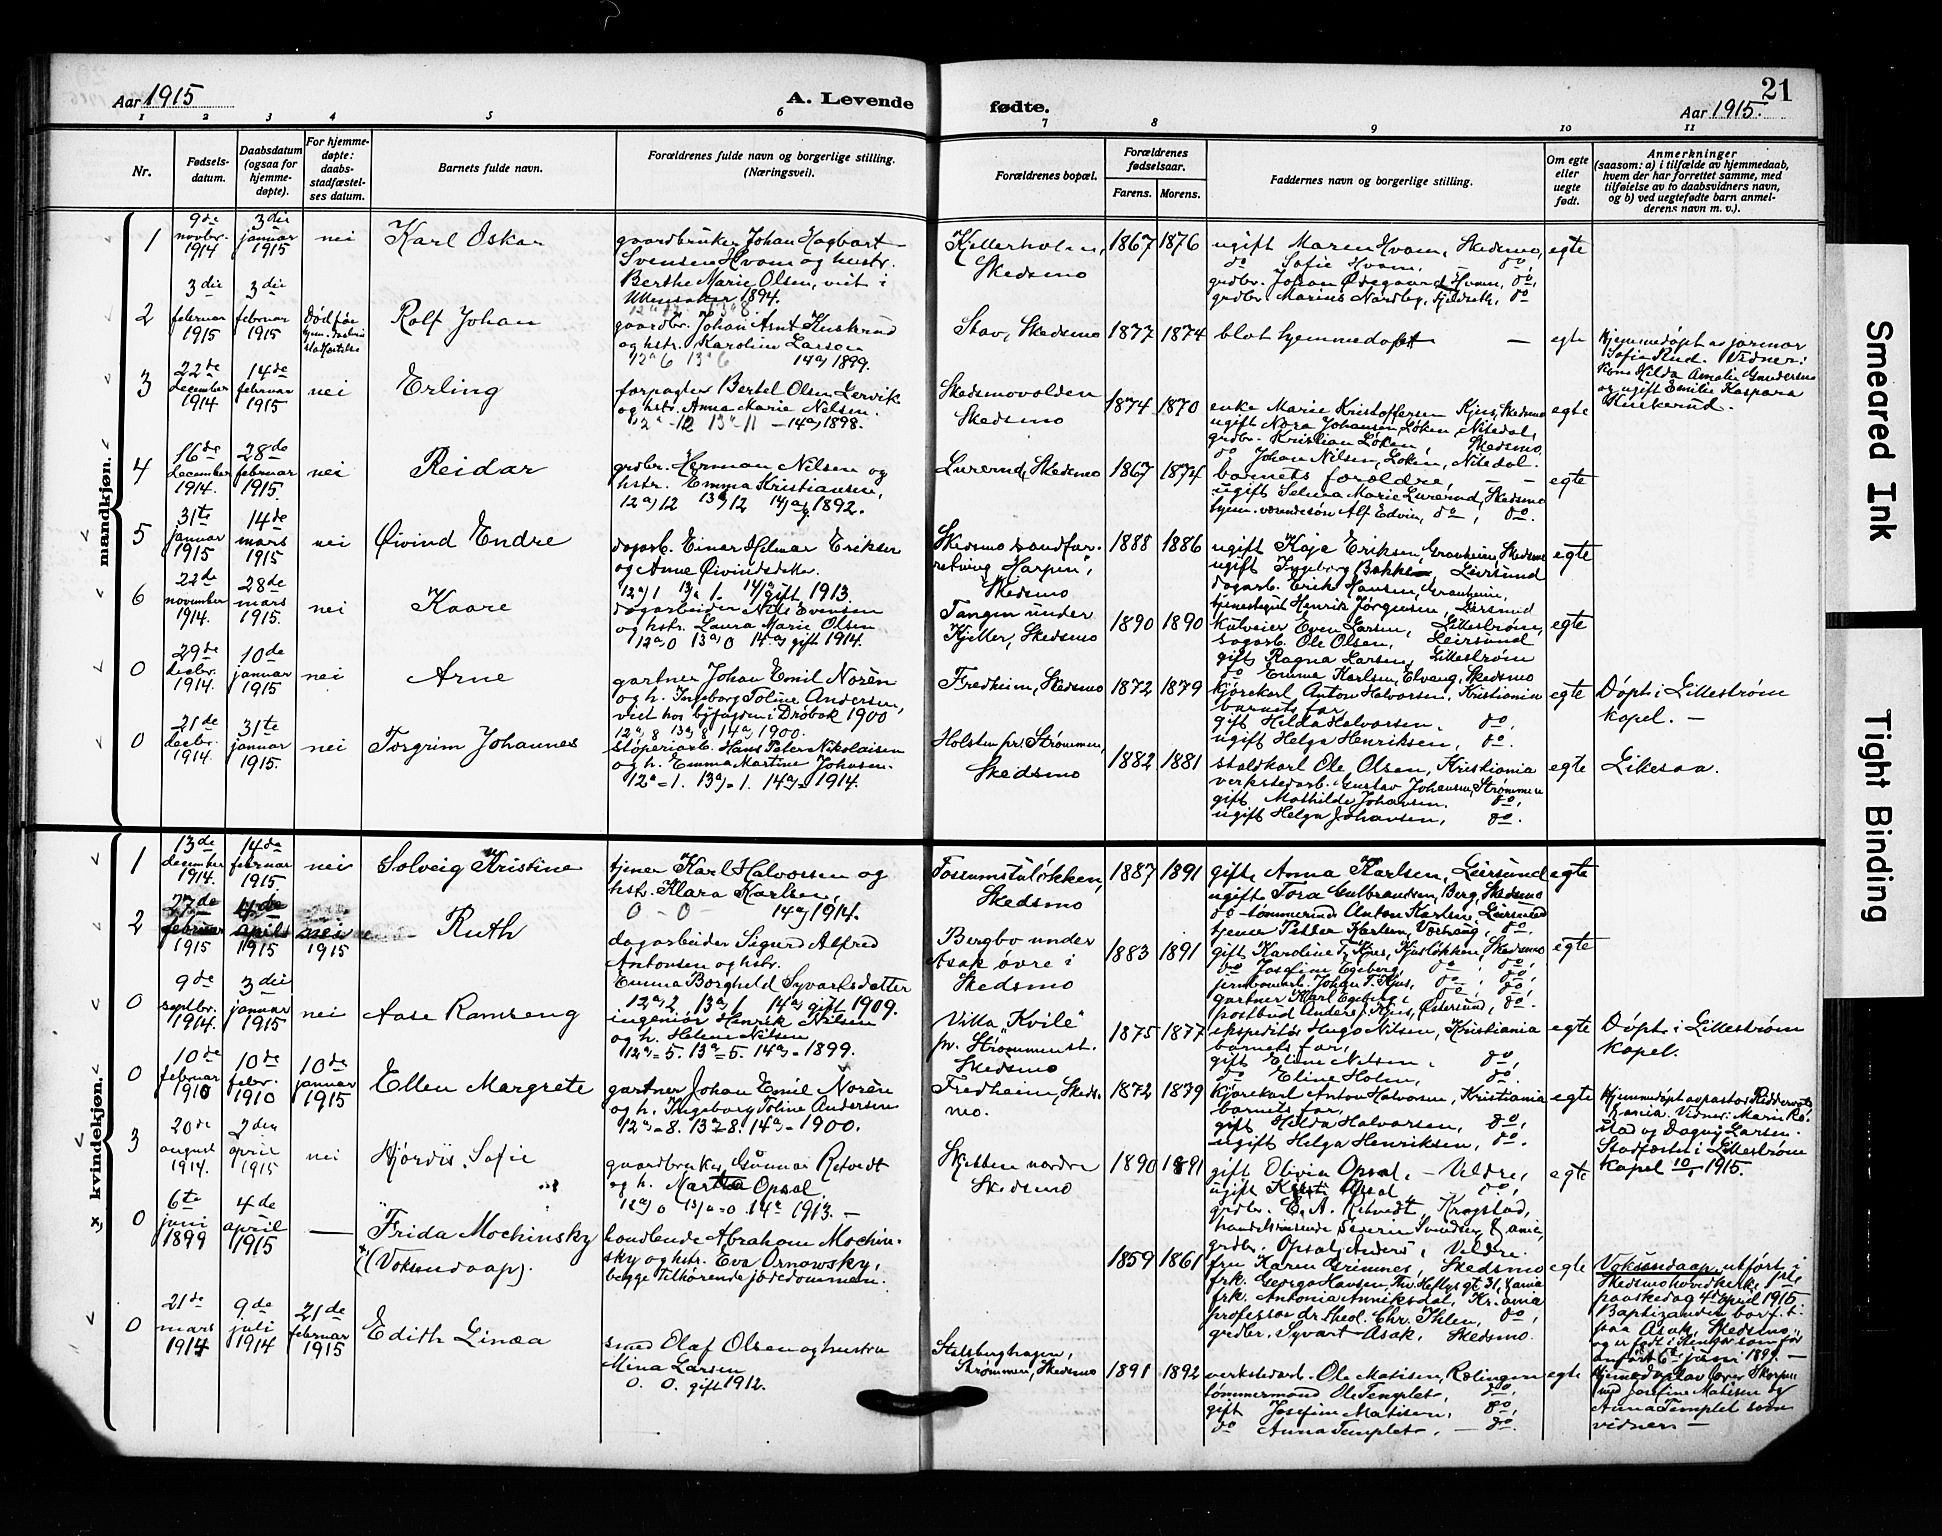 Aar 1915
A. Levende fødte.
21
Aar 1915.
1 2 3 4 5 6 7 8 9 10 11
Nr.
Fødsels-
datum.
Daabsdatum
(ogsaa for
hjemme-
døpte).
For hjemme-
døpte:
daabs-
stadfæstel-
ses datum.
Barnets fulde navn.
Forældrenes fulde navn og borgerlige stilling.
(Næringsvei).
Forældrenes bopæl.
Forældrenes
fødselsaar.
Farens. Morens.
Faddernes navn og borgerlige stilling.
Om egte
eller
uegte
født.
Anmerkninger
(saasom: a) i tilfælde av hjemmedaab,
hvem der har forrettet samme, med
tilføielse av to daabsvidners navn,
og b) ved uegtefødte barn anmel-
derens navn m. v.).
mandkjøn.
1
9de
novbr.
1914
3die
januar
1915
nei
Karl Oskar
gaardbruker Johan Hagbart
Svensen Hvam og hustr.
Berthe Marie Olsen, viet i
Ullensaker 1894.
Kjellerholen,
Skedsmo
1867 1876
ugift Maren Hvam, Skedsmo,
do Sofie Hvam, do,
grdbr. Johan Ødegaard Hvam, do,
grdbr. Marius Nordby, do
egte
2
3die
februar
1915
3die
februar
1915
Død før
Rolf Johan
gaardbr. Johan Arnt Huskerud
og hstr. Karoline Larsen
12a 6 13a 6 14a) 1899.
Stav, Skedsmo
1877 1874
blot hjemmedøpt —
egte
Hjemmedøpt av jormor
Sofie Rud. Vidner:
Kone Hilda Amalie Gundersen
og ugift Emilie Kaspara
Huskerud.
3
22de
december
1914
14de
februar
1915
nei
Erling
forpagter Bertel Olsen Lervik
og hstr. Anna Marie Nilsen.
12a-12 13a 11 - 14a) 1898.
Skedsmovolden
Skedsmo
1874 1870
enke Marie Kristoffersen Kjus, Skedsmo
ugift Nora Johansen Løken, Nitedal,
grdbr. Kristian Løken, Skedsmo,
do Johan Nilsen, Løken, Nitedal.
egte
4
16de
december
1914.
28de
februar
1915.
nei
Reidar
grdbr. Herman Nilsen og
hstr. Emma Kristiansen,
12a) 12 13a) 12 14a) 1892.
Lurerud, Skedsmo
1867 1874
barnets forældre, — —
ugift Selma Marie Lurerud, Skedsmo
hjem. værende søn Alf Edvin, do, do.
egte
5
31te
januar
1915
14de
mars
1915
nei
Øivind Endre
dagarb. Einar Hilmar Eriksen
og Anne Øivindsdatter.
12a) 1 13a 1. 14a) gift 1913.
Skedsmo sandfor-
retning "Harpen",
Skedsmo
1888 1886
ugift Kaja Eriksen, Granheim, Skedsmo
ugift Ingeborg Bakken, Leirsund
dagarb. Erik Hansen, Granheim,
tjenestegut Henrik Jørgensen, Leirsund
egte
6
22de
november
1914.
28de
mars
1915.
nei
Kaare
dagarbeider Nils Evensen
og hstr. Laura Marie Olsen
12a) 0 13a) 0 14a) gift 1914.
Tangen under
Kjeller, Skedsmo
1890 1890
Even Larsen, Lillestrøm,
sagarb. Ole Olsen, Leirsund
gift Ragna Larsen, Lillestrøm
do Emma Karlsen, Elvang, Skedsmo
egte
0
29de
decbr.
1914.
10de
januar
1915
nei
Arne
gartner Johan Emil Norén
og h. Ingeborg Toline Andersen,
viet hos byfogden i Drøbak 1900
12a) 8 13a) 8 14a) 1900.
Fredheim, Skedsmo
1872 1879
kjørekarl Anton Halvorsen, Kristiania
barnets far,
gift Hilda Halvorsen, do,
ugift Helga Henriksen, do.
egte
Døpt i Lillestrøm
kapel. —
0
21de
decbr.
1914.
31te
januar
1915.
nei
Torgrim Johannes
støperiarb. Hans Peter Nikolaisen
og h. Emma Martine Johnsen.
12a = 1. 13a) = 1. 14a) = 1914.
Holsten pr. Strømmen,
Skedsmo
1882 1881
staldkarl Ole Olsen, Kristiania
verkstedarb. Gustav Johansen, Strømmen
gift Mathilde Johansen, do,
ugift Helga Johansen, do.
egte
Likesaa.
x, kvindekjøn.
1
13de
december
1914.
14de
februar
1915.
nei
Solveig Kristine
tjener Karl Halvorsen og
hstr. Klara Karlsen,
0 - 0 - 14a) 1914.
Fossumstuløkken,
Skedsmo
1887 1891
gift Anna Karlsen, Leirsund
ugift Tora Gulbrandsen, Berg, Skedsmo
do tømmermd Anton Karlsen, Leirsund
tjener Petter Karlsen, do.
egte
2
27de
februar
1915
4de
april
1915
nei
1915
Ruth
dagarbeider Sigurd Alfred
Antonsen og hstr.
Emma Borghild Syvartsdatter
12a) 2 13a) 1. 14a) gift 1909.
Bergbo under
Asak øvre i
Skedsmo
1883 1891
gift Karoline T. Kjus, Kjusløkken, Skedsmo
do Josefine Egeberg, do, do,
jernbanearb. Johan T. Kjus, do, do
gartner Karl Egeberg, do, do
postbud Anders Kjus, do.
egte
0
9de
septbr.
1914.
3die
januar
1915
nei
Aase Ramseng
ingeniør Henrik Nilsen
og h. Helene Nilsen
12a) = 5. 13a = 5. 14a) = 1899.
Villa "Kvile"
pr. Strømmen st.
Skedsmo
1875 1877
ekspeditør Hugo Nilsen, Kristiania
barnets far,
gift Eline Nilsen, do,
do Eline Holm, do.
egte
Døpt i Lillestrøm
kapel.
0
10de
februar
1910
10de
febr.
1910
10de
januar
1915
Ellen Margrete
gartner Johan Emil Norén
og h. Ingeborg Toline Andersen
12a) = 8. 13a = 8. 14a) = 1900.
Fredheim, Skeds-
mo.
1872 1879
kjørekarl Anton Halvorsen, Kristiania
barnets far,
gift Hilda Halvorsen, do,
ugift Helga Henriksen, do.
egte
Hjemmedøpt av pastor Riddervold
Kr.ania. Vidner: Marie Rø-
stad og Dagny Larsen.
Stadfæstet i Lillestrøm
kapel 10/1 1915.
3
20de
august
1914.
2den
april
1915
nei
Hjørdis Sofie
gaardbruker Gunnar Retvedt
og h. Martha Opsal
12a) 0 13a) = 0 14a 1913. —
Skjetten nordre
Skedsmo
1890 1891
gift Olivia Opsal, — Veldre,
ugift Kjersti Opsal do,
grdbr. E. A. Retvedt, Kragstad,
handelsreisende Severin Svendsen, Kr.ania,
grdbr. Opsal, Anders, Veldre.
egte
0
6te
juni
1899
4de
april
1915
—
Frida Mochinsky
x) (Voksendaap).
handlende Abraham Mochin-
sky og hstr. Eva Ornowsky,
begge tilhørende jødedommen.
1859 1861
fru Karen Grimnes, Skedsmo
frk. Georga Hansen, Thv. Meltzers gt 31, Kr.ania
frk. Antonia Anniksdal, Kr.ania
professor dr. theol. Chr. Ihlen, do,
grdbr. Syvart Asak, Skedsmo.
egte
Voksendaap utført i
Skedsmo hovedkirke, 1ste
paaskedag 4de april 1915
Baptizanden bor f. t.
paa Asak, Skedsmo,
og er født i som før
anført 6te juni 1899. —
0
21de
mars
1914
9de
juli
1914
21de
februar
1915
Edith Linea
smed Olaf Olsen og hustru
Mina Larsen
0. 0. gift 1912.
Stalsberghagen,
Strømmen, Skedsmo
1891 1892
verkstedarb. Ole Matisen, Rælingen
tømmermand Ole Templet, do,
gift Josefine Matisen, do,
do Anna Templet, — do
egte
Hjemmedøpt av lærer
med Josefine Matisen og
Anna Templet som
vidner —
Smeared Ink
Tight Binding